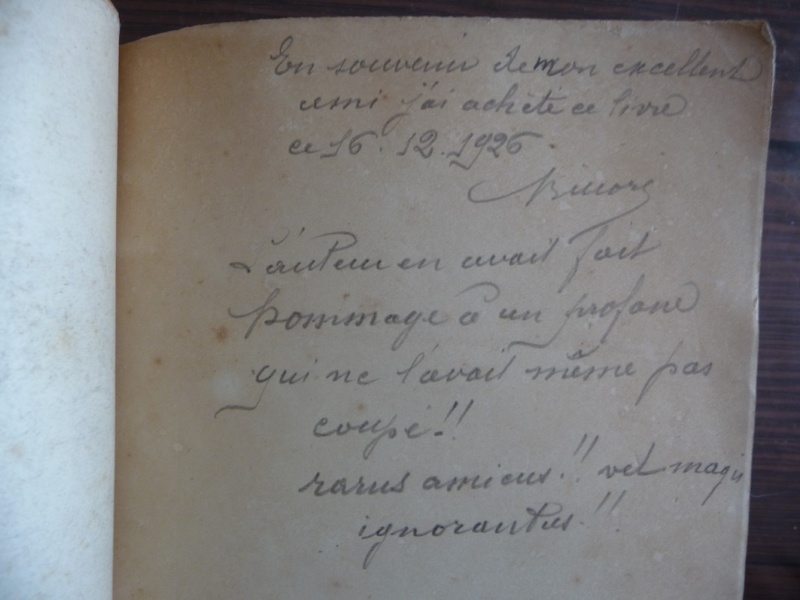 En souvenir de mon excellent
ami j'ai acheté ce livre
ce 16.12.1926.
L'auteur en avait fait
hommage à un profane
qui ne l'avait même pas
coupé!!
rarus amicus!! vel magis
ignorantus!!